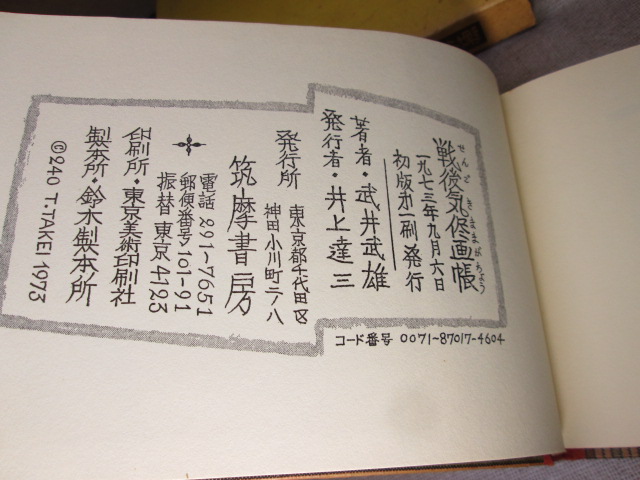 せんごきままがちょう
戦後気侭画帳
一九七三年九月六日
初版才一刷発行
著者・武井武雄
発行者・井上達三
発行所
東京都千代田区
神田小川町二ノ八
筑摩書房
電話 291-7651
郵便番号 101-91
振替 東京 4123
印刷所・東京美術印刷社
製本所・鈴木製本所
©240 T・TAKEI 1973
コード番号 0071-87017-4604